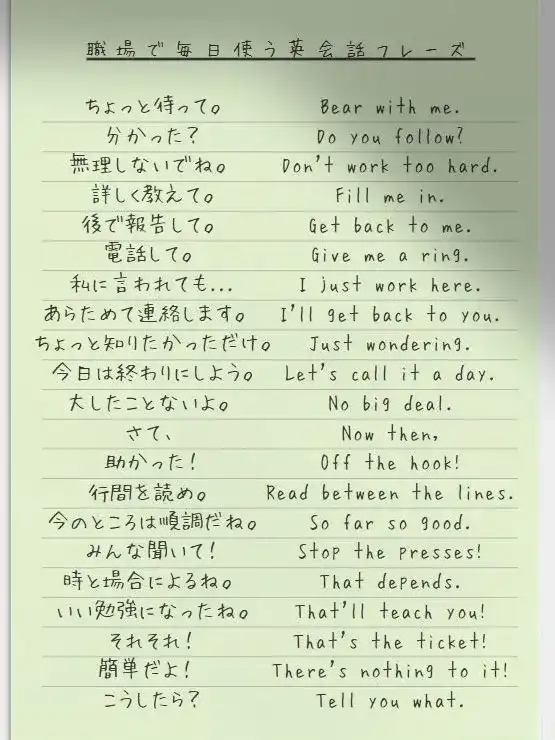 職場で毎日使う英会話フレーズ
ちょっと待って。 Bear with me.
分かった? Do you follow?
無理しないでね。 Don't work too hard.
詳しく教えて。 Fill me in.
後で報告して。 Get back to me.
電話して。 Give me a ring.
私に言われても... I just work here.
あらためて連絡します。 I'll get back to you.
ちょっと知りたかっただけ。 Just wondering.
今日は終わりにしよう。 Let's call it a day.
大したことないよ。 No big deal.
さて、 Now then,
助かった! Off the hook!
行間を読め。 Read between the lines.
今のところは順調だね。 So far so good.
みんな聞いて! Stop the presses!
時と場合によるね。 That depends.
いい勉強になったね。 That'll teach you!
それそれ! That's the ticket!
簡単だよ! There's nothing to it!
こうしたら? Tell you what.